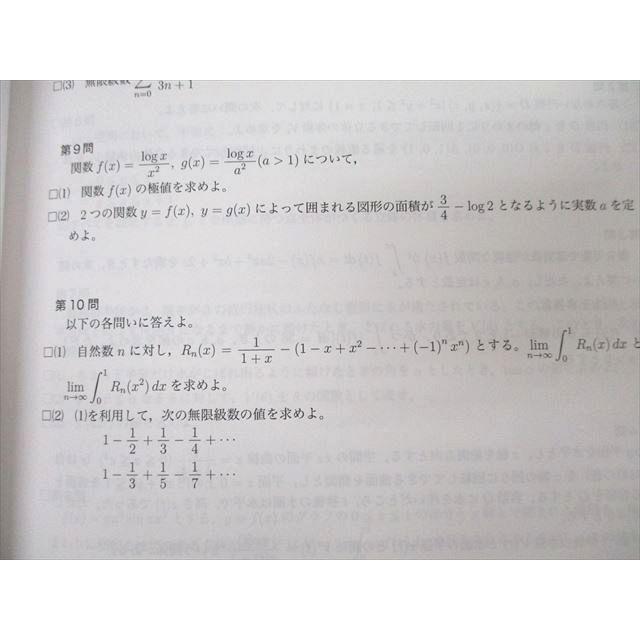 □(3) 無限級数 \sum_{n=0} 3n+1
第9問
関数 f(x) = \frac{\log x}{x^2}, g(x) = \frac{\log x}{a^2} (a > 1) について,
□(1) 関数 f(x) の極値を求めよ。
□(2) 2つの関数 y = f(x), y = g(x) によって囲まれる図形の面積が \frac{3}{4} − log 2 となるように実数 a を定
めよ。
第10問
以下の各問いに答えよ。
□(1) 自然数 n に対し, R_n(x) = \frac{1}{1+x} − (1 − x + x^2 − ⋯ + (−1)^n x^n) とする。 \lim_{n→∞} \int_0^1 R_n(x) dx と
\lim_{n→∞} \int_0^1 R_n(x^2) dx を求めよ。
□(2) (1)を利用して, 次の無限級数の値を求めよ。
1 − \frac{1}{2} + \frac{1}{3} − \frac{1}{4} + ⋯
1 − \frac{1}{3} + \frac{1}{5} − \frac{1}{7} + ⋯